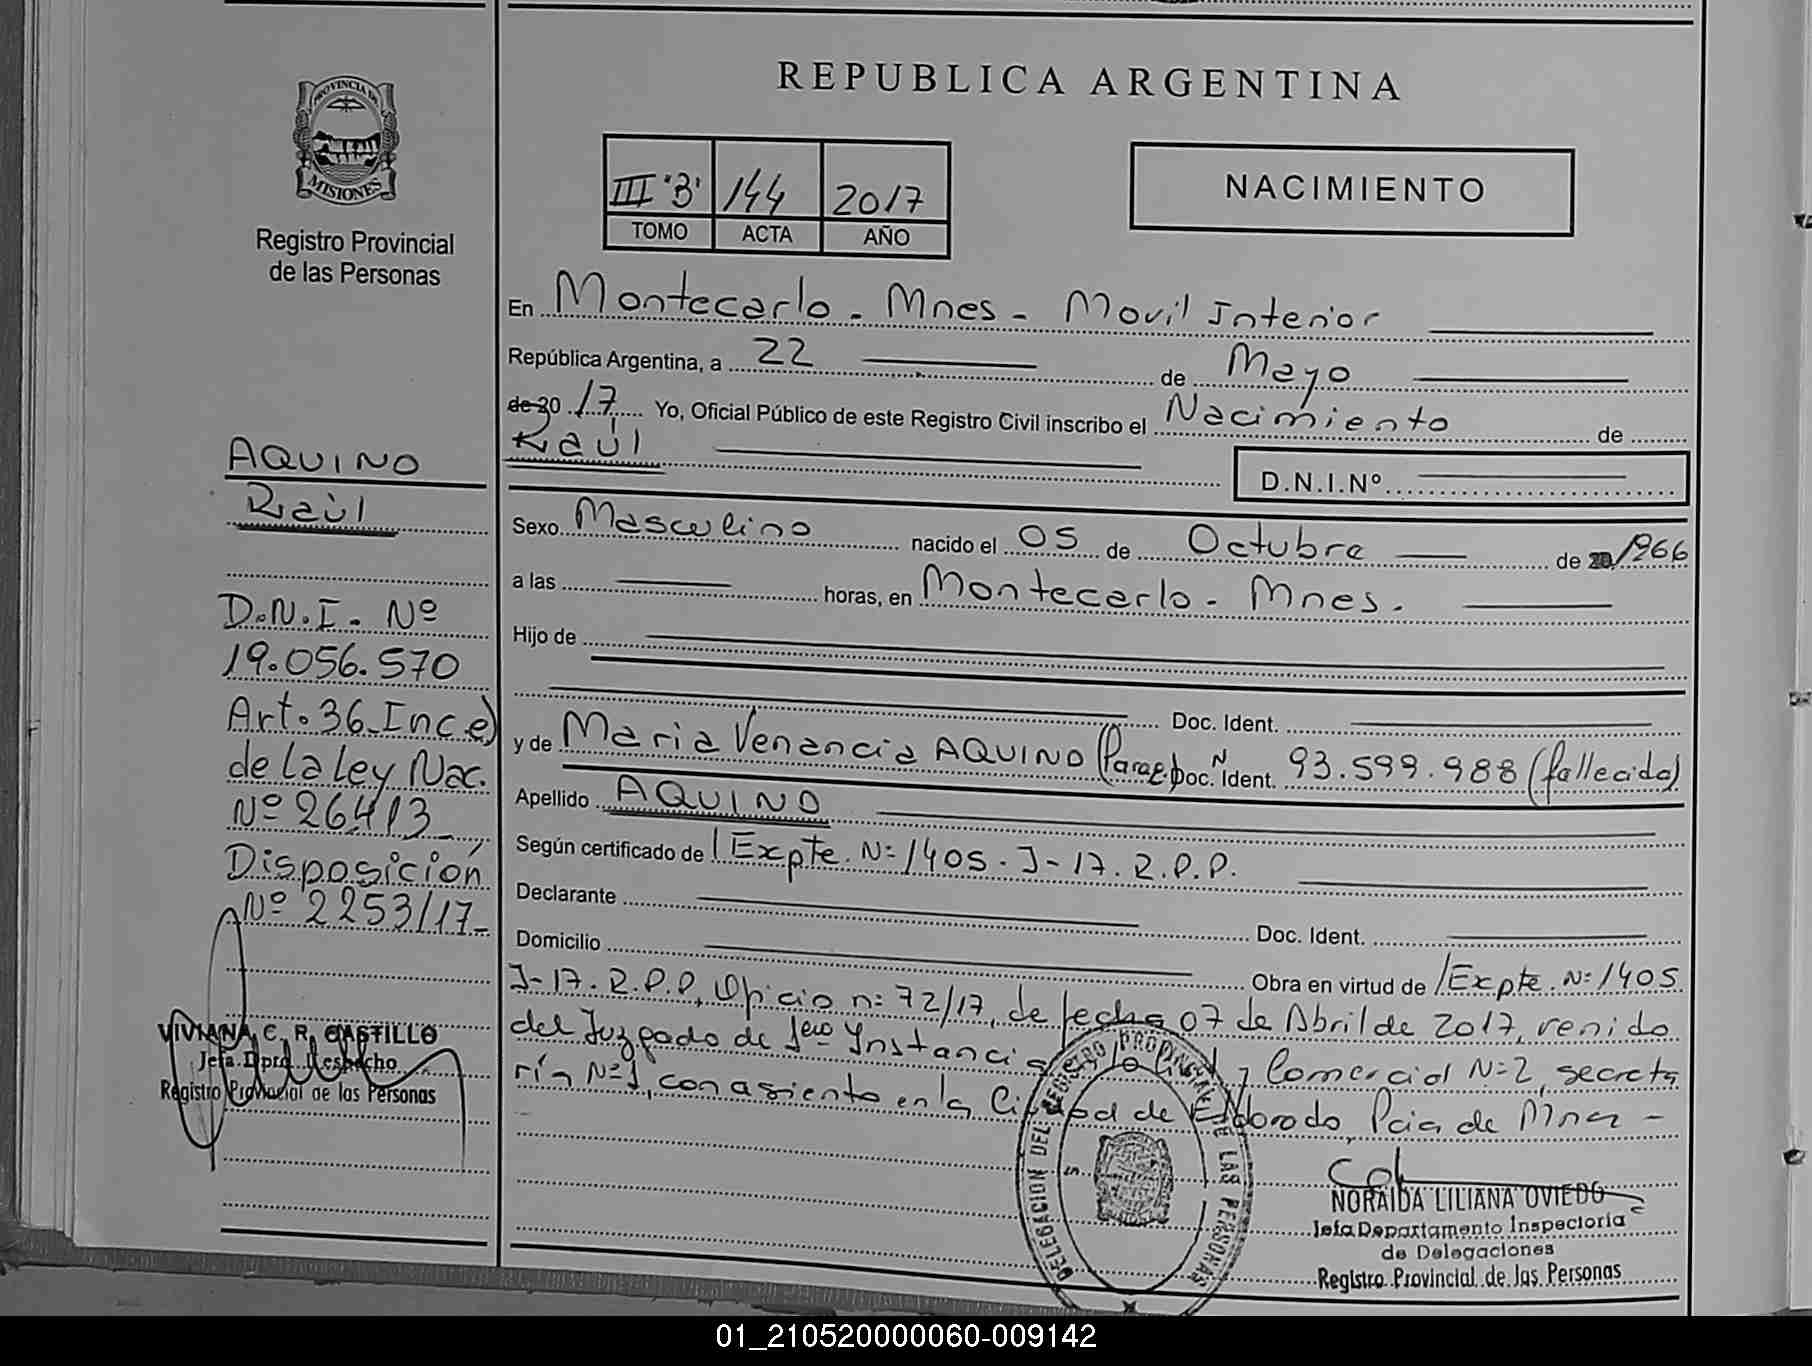 REPUBLICA ARGENTINA
PROVINCIA DE
MISIONES
Registro Provincial
de las Personas
III "B" 144 2017
TOMO ACTA AÑO
NACIMIENTO
En Montecarlo - Mnes - Movil Interior
República Argentina, a 22 de Mayo
de 20 17 Yo, Oficial Público de este Registro Civil inscribo el Nacimiento de
Raúl
D.N.I.Nº
Sexo Masculino nacido el 05 de Octubre de 20 1966
a las horas, en Montecarlo - Mnes.
Hijo de
Doc. Ident.
y de Maria Venancia AQUINO (Parag.) Doc. Ident. Nº 93.599.988 (fallecida)
Apellido AQUINO
Según certificado de Expte. Nº 1405 - J-17. R.P.P.
Declarante Doc. Ident.
Domicilio Obra en virtud de Expte. Nº 1405
J-17. R.P.P, Oficio nº 72/17, de fecha 07 de Abril de 2017, venido
del Juzgado de 1ero Instancia lo Civil y Comercial Nº 2, secreta
ría Nº 1, con asiento en la Ciudad de Eldorado, Pcia de Mnes -
AQUINO
Raúl
D.N.I. Nº
19.056.570
Art. 36 Inc e)
de la Ley Nac.
Nº 26413
Disposición
Nº 2253/17
VIVIANA C. R. CASTILLO
Jefa Dpto. Despacho
Registro Provincial de las Personas
DELEGACION DEL REGISTRO PROVINCIAL DE LAS PERSONAS
NORAIDA LILIANA OVIEDO
Jefa Departamento Inspectoria
de Delegaciones
Registro Provincial de las Personas
01_210520000060-009142